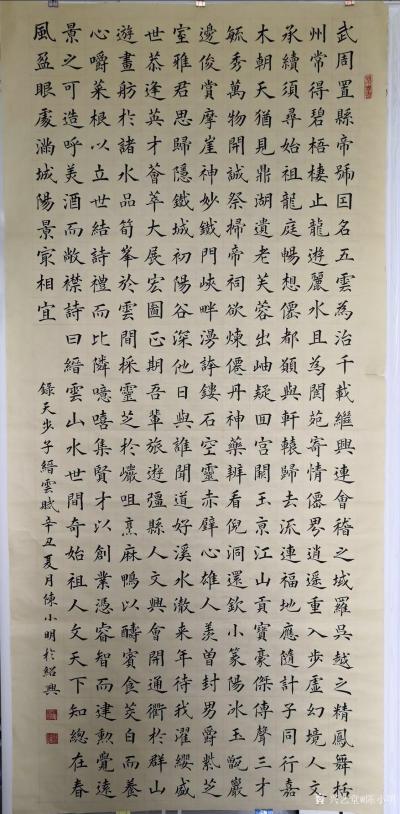 武周置縣帝號因名五雲為治千載繼興連會稽之城羅吳越之精鳳舞桔
州常得碧梧棲止龍遊麗水且為閬苑寄情僊界逍遥重入步虛幻境人文
承續須尋始祖龍庭暢想僊都願與軒轅歸去流連福地應隨計子同行嘉
木朝天猶見鼎湖遺老芙蓉出岫疑回宮闕玉京江山貢寶豪傑傳聲三才
毓秀萬物開誠祭掃帝祠欲煉僊丹神藥辨看倪洞還欽小篆陽冰玉甑巖
邊俊賞摩崖神妙鐵門峽畔漫誇鏤石空靈赤壁心雄人羨曽封男爵紫芝
室雅君思歸隱鐵城初陽谷深他日與誰聞道好溪水澈来年待我濯纓盛
世恭逢英才薈萃大展宏圖正期吾輩旅遊彊縣人文興會開通衢於群山
遊畫舫於諸水品筍峯於雲間採靈芝於巘咀烹麻鴨以醻賓食茭白而養
心嚼菜根以立世結詩禮而比隣噫嘻集賢才以創業憑睿智而建勲覺遠
景之可造呼美酒而敞襟詩曰縉雲山水世間奇始祖人文天下知總在春
風盈眼處滿城陽景冣相宜
錄天步子縉雲賦辛丑夏月陳小明於紹興
兴艺堂@陈小明